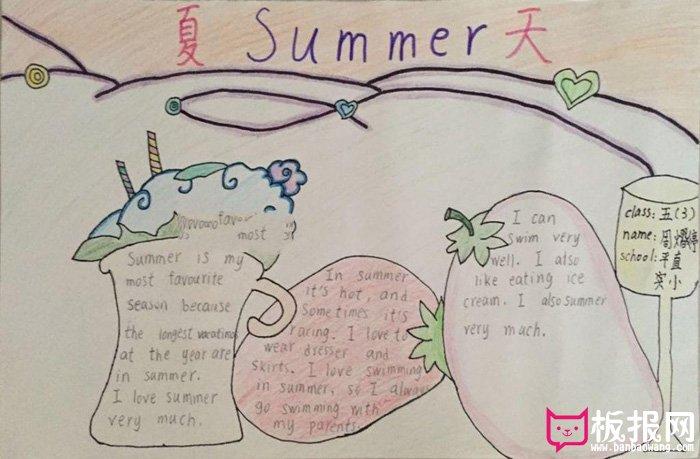 夏 Summer 天
favor
most
Summer is my
most favourite
season because
the longest vacation
at the year are
in summer.
I love summer
very much.
In summer
it's hot, and
Sometimes it's
racing. I love to
wear dresser and
skirts. I love swimming
in summer, so I always
go swimming with
my parents.
I can
swim very
well. I also
like eating ice
cream. I also summer
very much.
class: 五(3)
name: 周
school: 平直
实小
板报网
www.banbaowang.com